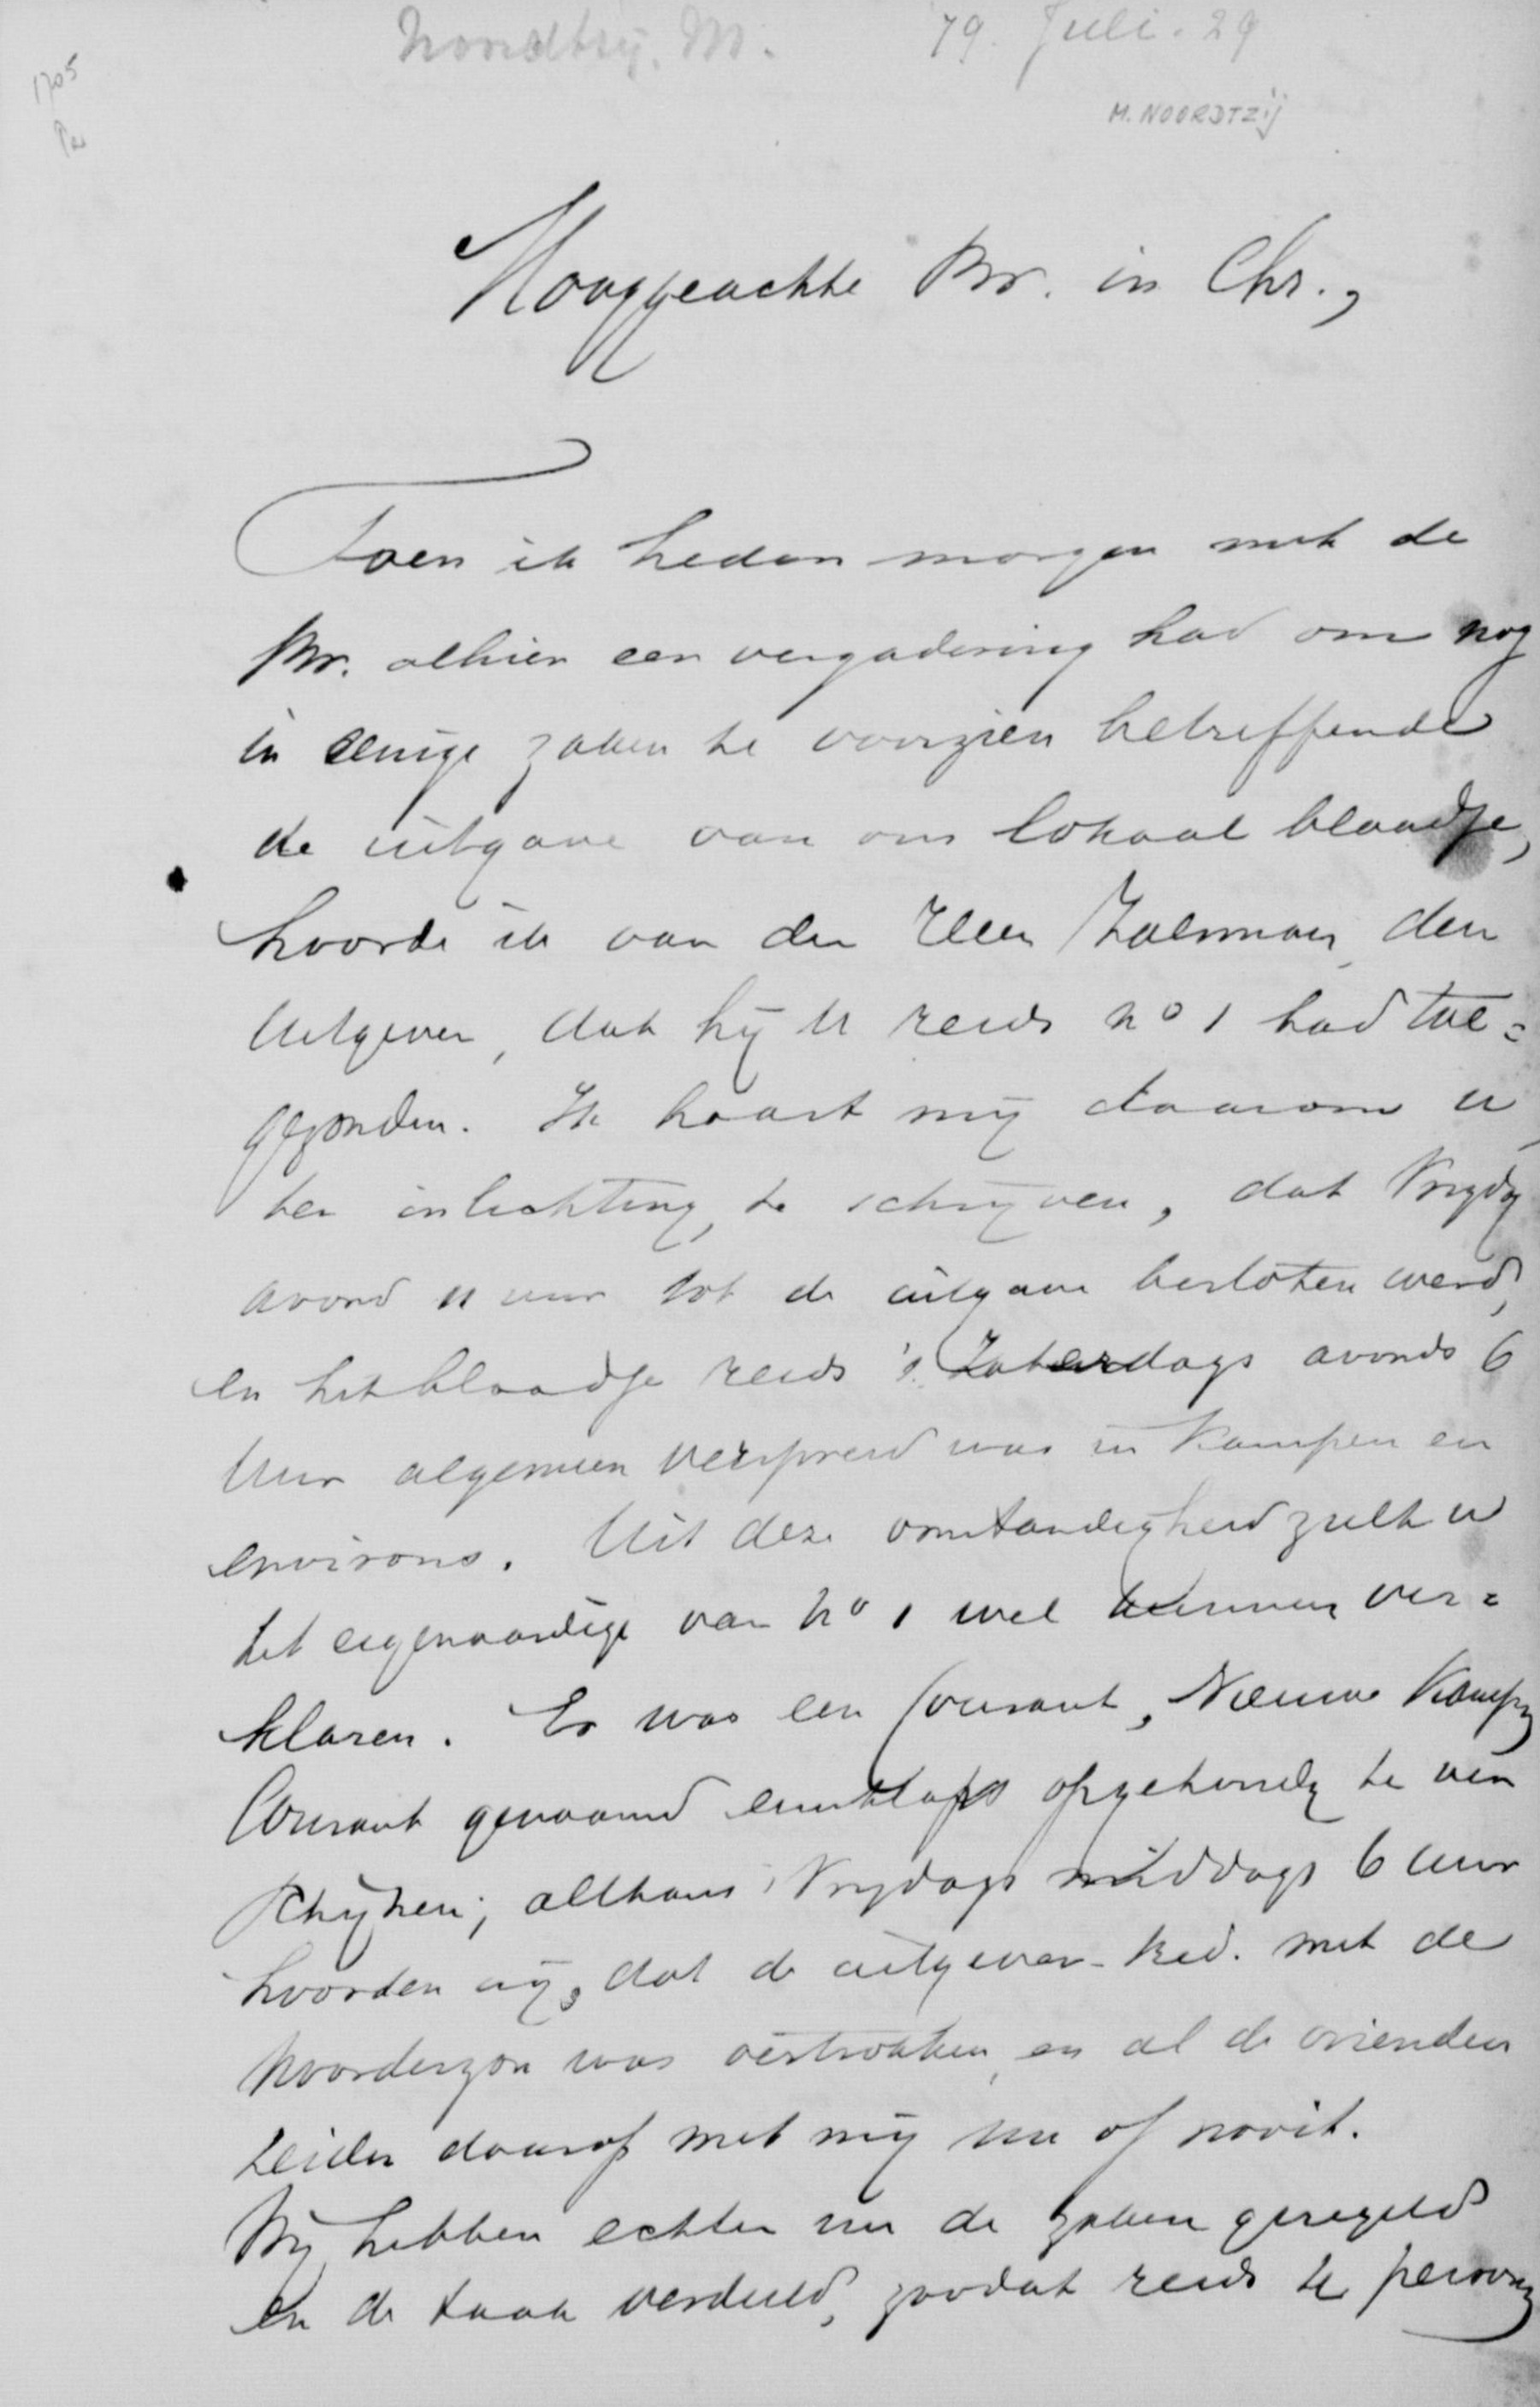 Noordtzij. M. 79. Juli. 29
1705
M. NOORDTZij
Hooggeachte Br. in Chr.,
Toen ik heden morgen met de
Br. alhier een vergadering had om nog
in eenige zaken te voorzien betreffende
de uitgave van ons lokaal blaadje,
hoorde ik van den Heer Zalsman, den
Uitgever, dat hij U reeds no 1 had toe=
gezonden. Ik haast mij daarom U,
ter inlichting, te schrijven, dat Vrijdag
avond 11 uur tot de uitgave besloten werd,
en het blaadje reeds 's Zaterdags avonds 6
Uur algemeen verspreid was in Kampen en
environs. Uit deze omstandigheid zult U
het eigenaardige van No 1 wel kunnen ver=
klaren. Er was een Courant, Nieuwe Kamper
Courant genaamd eensklaps opgehouden te ver
schijnen; althans Vrijdags middags 6 uur
hoorden wij, dat de uitgever-Red. met de
Noorderzon was vertrokken, en al de vrienden
zeiden daarop met mij nu of nooit.
Wij hebben echter nu de zaken geregeld
en de taak verdeeld, zoodat reeds 12 personen